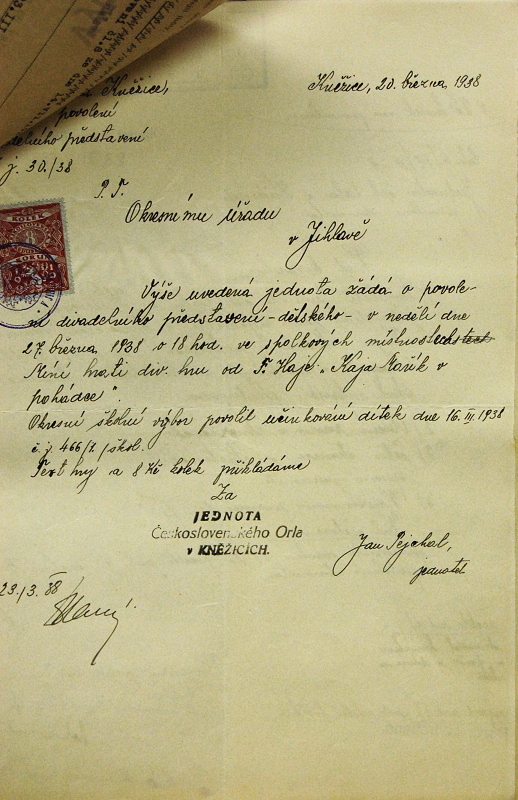 Kněžice, 20. března 1938
Kněžice,
povolení
delního představení
j. 30./38
P. T.
Okresnímu úřadu
v Jihlavě
KOLEK
Výše uvedená jednota žádá o povole-
ní divadelního představení - dětského - v neděli dne
27. března 1938 o 18 hod. ve spolkových místnostech
Míní hráti div. hru od F. Háje „Kája Mařík v
pohádce".
Okresní školní výbor povolil učinkování dítek dne 16. III. 1938
č. j. 466/1. škol.
Text hry a 8 Kč kolek přikládáme
Za
JEDNOTA
Československého Orla
v KNĚŽICÍCH.
Jan Pejchal,
jednatel
23./3. 38